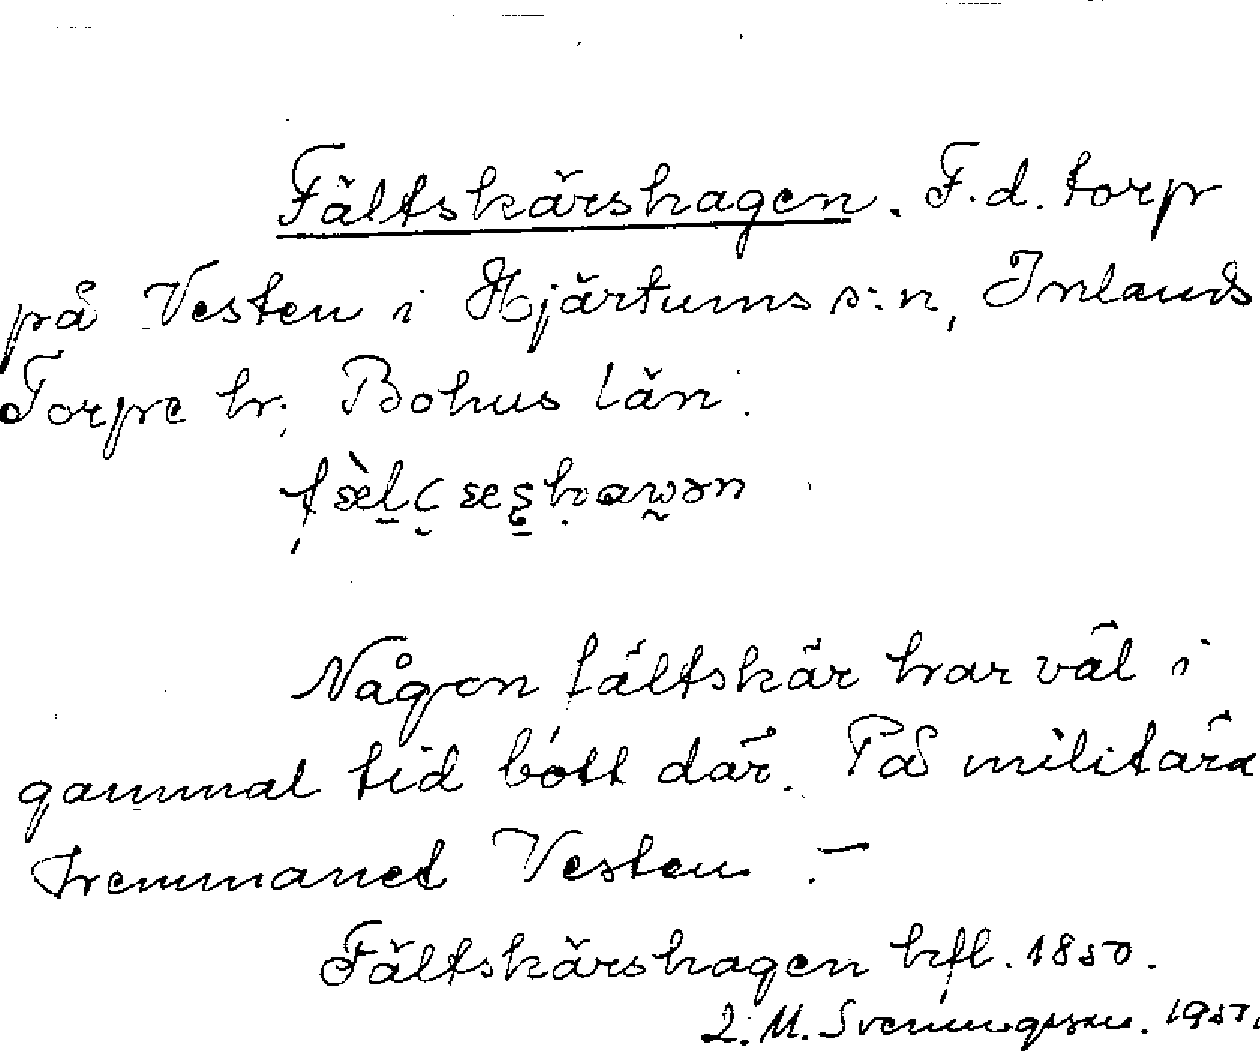 Fältskärshagen. F.d. torp
på Vesten i Hjärtums s:n, Inlands
Torpe hr, Bohus län.
Någon fältskär har väl i
gammal tid bott där. På militära
hemmanet Vesten. –
Fältskärshagen hfl. 1850.